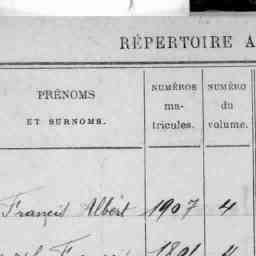 RÉPERTOIRE A
PRÉNOMS
ET SURNOMS.
NUMÉROS
ma-
tricules.
NUMÉRO
du
volume.
Françis Albert 1907 4
1891 4